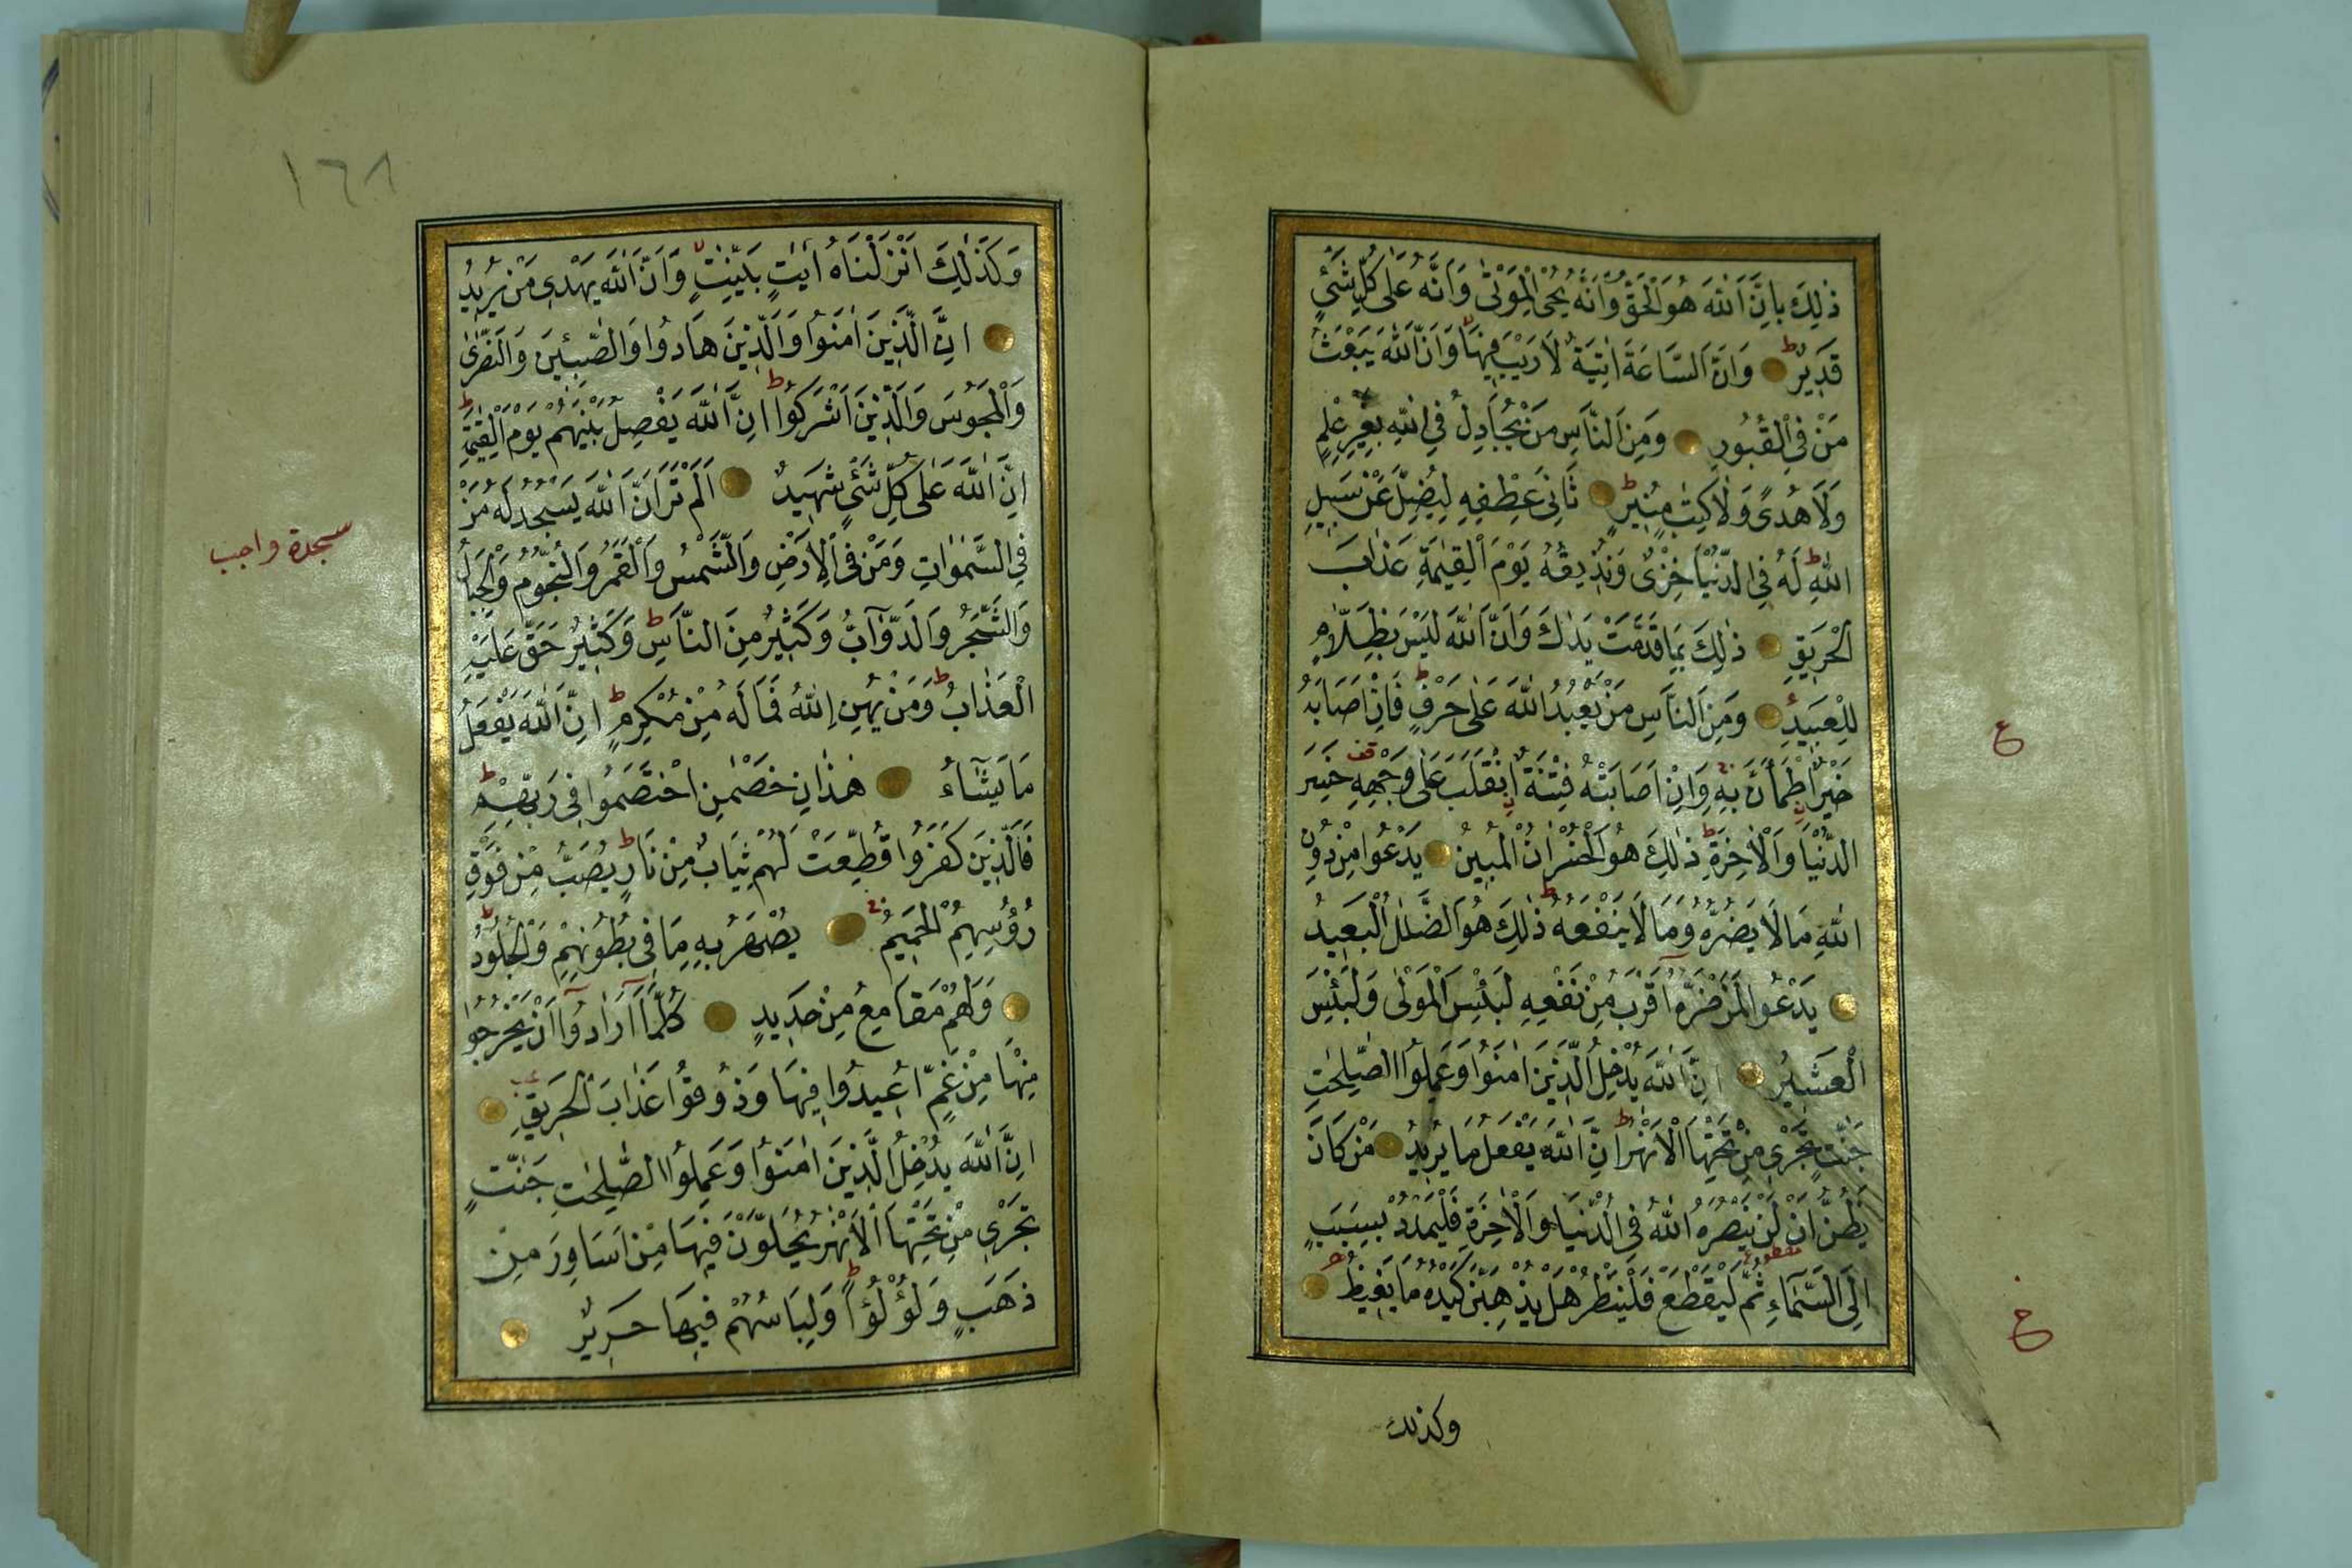 ذٰلِكَ بِاَنَّ اللّٰهَ هُوَ الْحَقُّ وَاَنَّهُ يُحْيِ الْمَوْتٰى وَاَنَّهُ عَلٰى كُلِّ شَيْءٍ
قَدِيرٌ ط وَاَنَّ السَّاعَةَ اٰتِيَةٌ لَا رَيْبَ فِيهَا لا وَاَنَّ اللّٰهَ يَبْعَثُ
مَنْ فِي الْقُبُورِ وَمِنَ النَّاسِ مَنْ يُجَادِلُ فِي اللّٰهِ بِغَيْرِ عِلْمٍ
وَلَا هُدًى وَلَا كِتٰبٍ مُنِيرٍ ط ثَانِيَ عِطْفِهِ لِيُضِلَّ عَنْ سَبِيلِ
اللّٰهِ ط لَهُ فِي الدُّنْيَا خِزْيٌ وَنُذِيقُهُ يَوْمَ الْقِيٰمَةِ عَذَابَ
الْحَرِيقِ ذٰلِكَ بِمَا قَدَّمَتْ يَدَاكَ وَاَنَّ اللّٰهَ لَيْسَ بِظَلَّامٍ
لِلْعَبِيدِ وَمِنَ النَّاسِ مَنْ يَعْبُدُ اللّٰهَ عَلٰى حَرْفٍ ط فَاِنْ اَصَابَهُ
ع
خَيْرٌ اطْمَاَنَّ بِهِ وَاِنْ اَصَابَتْهُ فِتْنَةٌ انْقَلَبَ عَلٰى وَجْهِهِ قف خَسِرَ
الدُّنْيَا وَالْاٰخِرَةَ ط ذٰلِكَ هُوَ الْخُسْرَانُ الْمُبِينُ يَدْعُوا مِنْ دُونِ
اللّٰهِ مَا لَا يَضُرُّهُ وَمَا لَا يَنْفَعُهُ ط ذٰلِكَ هُوَ الضَّلٰلُ الْبَعِيدُ
يَدْعُوا لَمَنْ ضَرُّهُ اَقْرَبُ مِنْ نَفْعِهِ لَبِئْسَ الْمَوْلٰى وَلَبِئْسَ
الْعَشِيرُ اِنَّ اللّٰهَ يُدْخِلُ الَّذِينَ اٰمَنُوا وَعَمِلُوا الصّٰلِحٰتِ
جَنّٰتٍ تَجْرِي مِنْ تَحْتِهَا الْاَنْهٰرُ ط اِنَّ اللّٰهَ يَفْعَلُ مَا يُرِيدُ مَنْ كَانَ
يَظُنُّ اَنْ لَنْ يَنْصُرَهُ اللّٰهُ فِي الدُّنْيَا وَالْاٰخِرَةِ فَلْيَمْدُدْ بِسَبَبٍ
اِلَى السَّمَاءِ ثُمَّ لْيَقْطَعْ فَلْيَنْظُرْ هَلْ يُذْهِبَنَّ كَيْدُهُ مَا يَغِيظُ
خ
وكذلك
١٦٨
وَكَذٰلِكَ اَنْزَلْنَاهُ اٰيٰتٍ بَيِّنٰتٍ لا وَاَنَّ اللّٰهَ يَهْدِي مَنْ يُرِيدُ
اِنَّ الَّذِينَ اٰمَنُوا وَالَّذِينَ هَادُوا وَالصّٰبِئِينَ وَالنَّصٰرٰى
وَالْمَجُوسَ وَالَّذِينَ اَشْرَكُوا ط اِنَّ اللّٰهَ يَفْصِلُ بَيْنَهُمْ يَوْمَ الْقِيٰمَةِ ط
اِنَّ اللّٰهَ عَلٰى كُلِّ شَيْءٍ شَهِيدٌ اَلَمْ تَرَ اَنَّ اللّٰهَ يَسْجُدُ لَهُ مَنْ
سجدة واجب
فِي السَّمٰوَاتِ وَمَنْ فِي الْاَرْضِ وَالشَّمْسُ وَالْقَمَرُ وَالنُّجُومُ وَالْجِبَالُ
وَالشَّجَرُ وَالدَّوَآبُّ وَكَثِيرٌ مِنَ النَّاسِ ط وَكَثِيرٌ حَقَّ عَلَيْهِ
الْعَذَابُ ط وَمَنْ يُهِنِ اللّٰهُ فَمَا لَهُ مِنْ مُكْرِمٍ ط اِنَّ اللّٰهَ يَفْعَلُ
مَا يَشَآءُ هٰذَانِ خَصْمٰنِ اخْتَصَمُوا فِي رَبِّهِمْ ط
فَالَّذِينَ كَفَرُوا قُطِّعَتْ لَهُمْ ثِيَابٌ مِنْ نَارٍ ط يُصَبُّ مِنْ فَوْقِ
رُؤُسِهِمُ الْحَمِيمُ يُصْهَرُ بِهِ مَا فِي بُطُونِهِمْ وَالْجُلُودُ ط
وَلَهُمْ مَقَامِعُ مِنْ حَدِيدٍ كُلَّمَآ اَرَادُوٓا اَنْ يَخْرُجُوا
مِنْهَا مِنْ غَمٍّ اُعِيدُوا فِيهَا وَذُوقُوا عَذَابَ الْحَرِيقِ
اِنَّ اللّٰهَ يُدْخِلُ الَّذِينَ اٰمَنُوا وَعَمِلُوا الصّٰلِحٰتِ جَنّٰتٍ
تَجْرِي مِنْ تَحْتِهَا الْاَنْهٰرُ يُحَلَّوْنَ فِيهَا مِنْ اَسَاوِرَ مِنْ
ذَهَبٍ وَلُؤْلُؤًا ط وَلِبَاسُهُمْ فِيهَا حَرِيرٌ